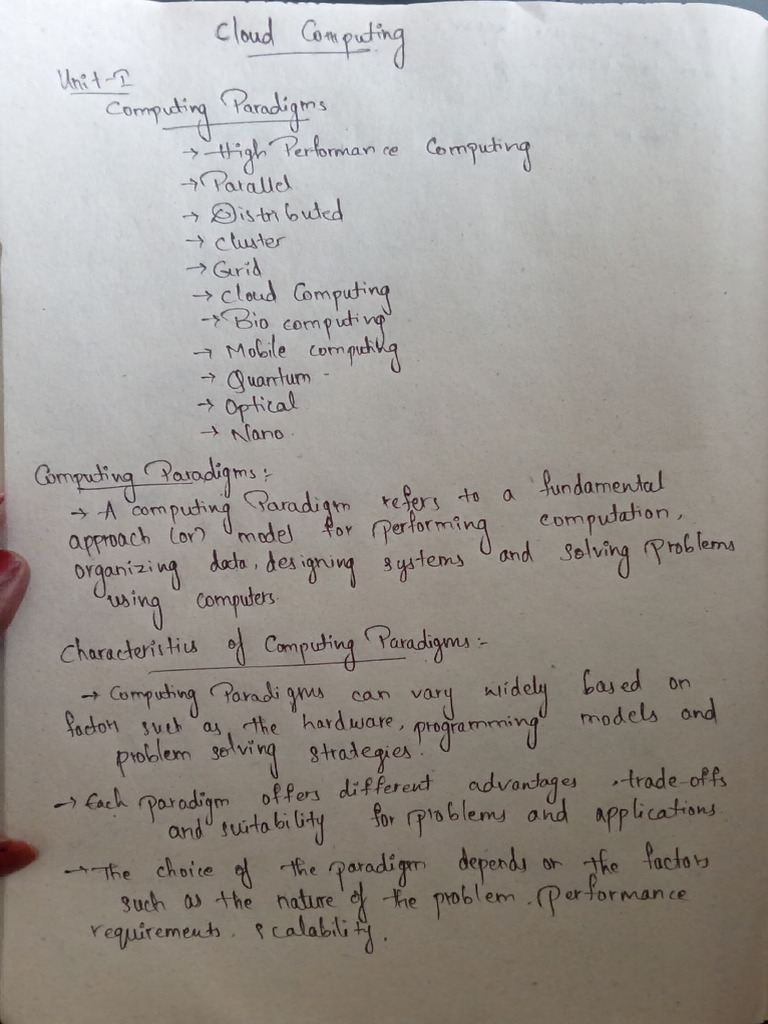 Cloud Computing
Unit-I
Computing Paradigms
→ High Performance Computing
→ Parallel
→ Distributed
→ cluster
→ Grid
→ Cloud Computing
→ Bio computing
→ Mobile computing
→ Quantum -
→ Optical
→ Nano.
Computing Paradigms:-
→ A computing Paradigm refers to a fundamental
approach (or) model for performing computation,
organizing data, designing systems and solving problems
using computers.
Characteristics of Computing Paradigms:-
→ Computing Paradigms can vary widely based on
factors such as the hardware, programming models and
problem solving strategies.
→ Each paradigm offers different advantages, trade-offs
and suitability for problems and applications
→ The choice of the paradigm depends on the factors
such as the nature of the problem. Performance
requirements. scalability.